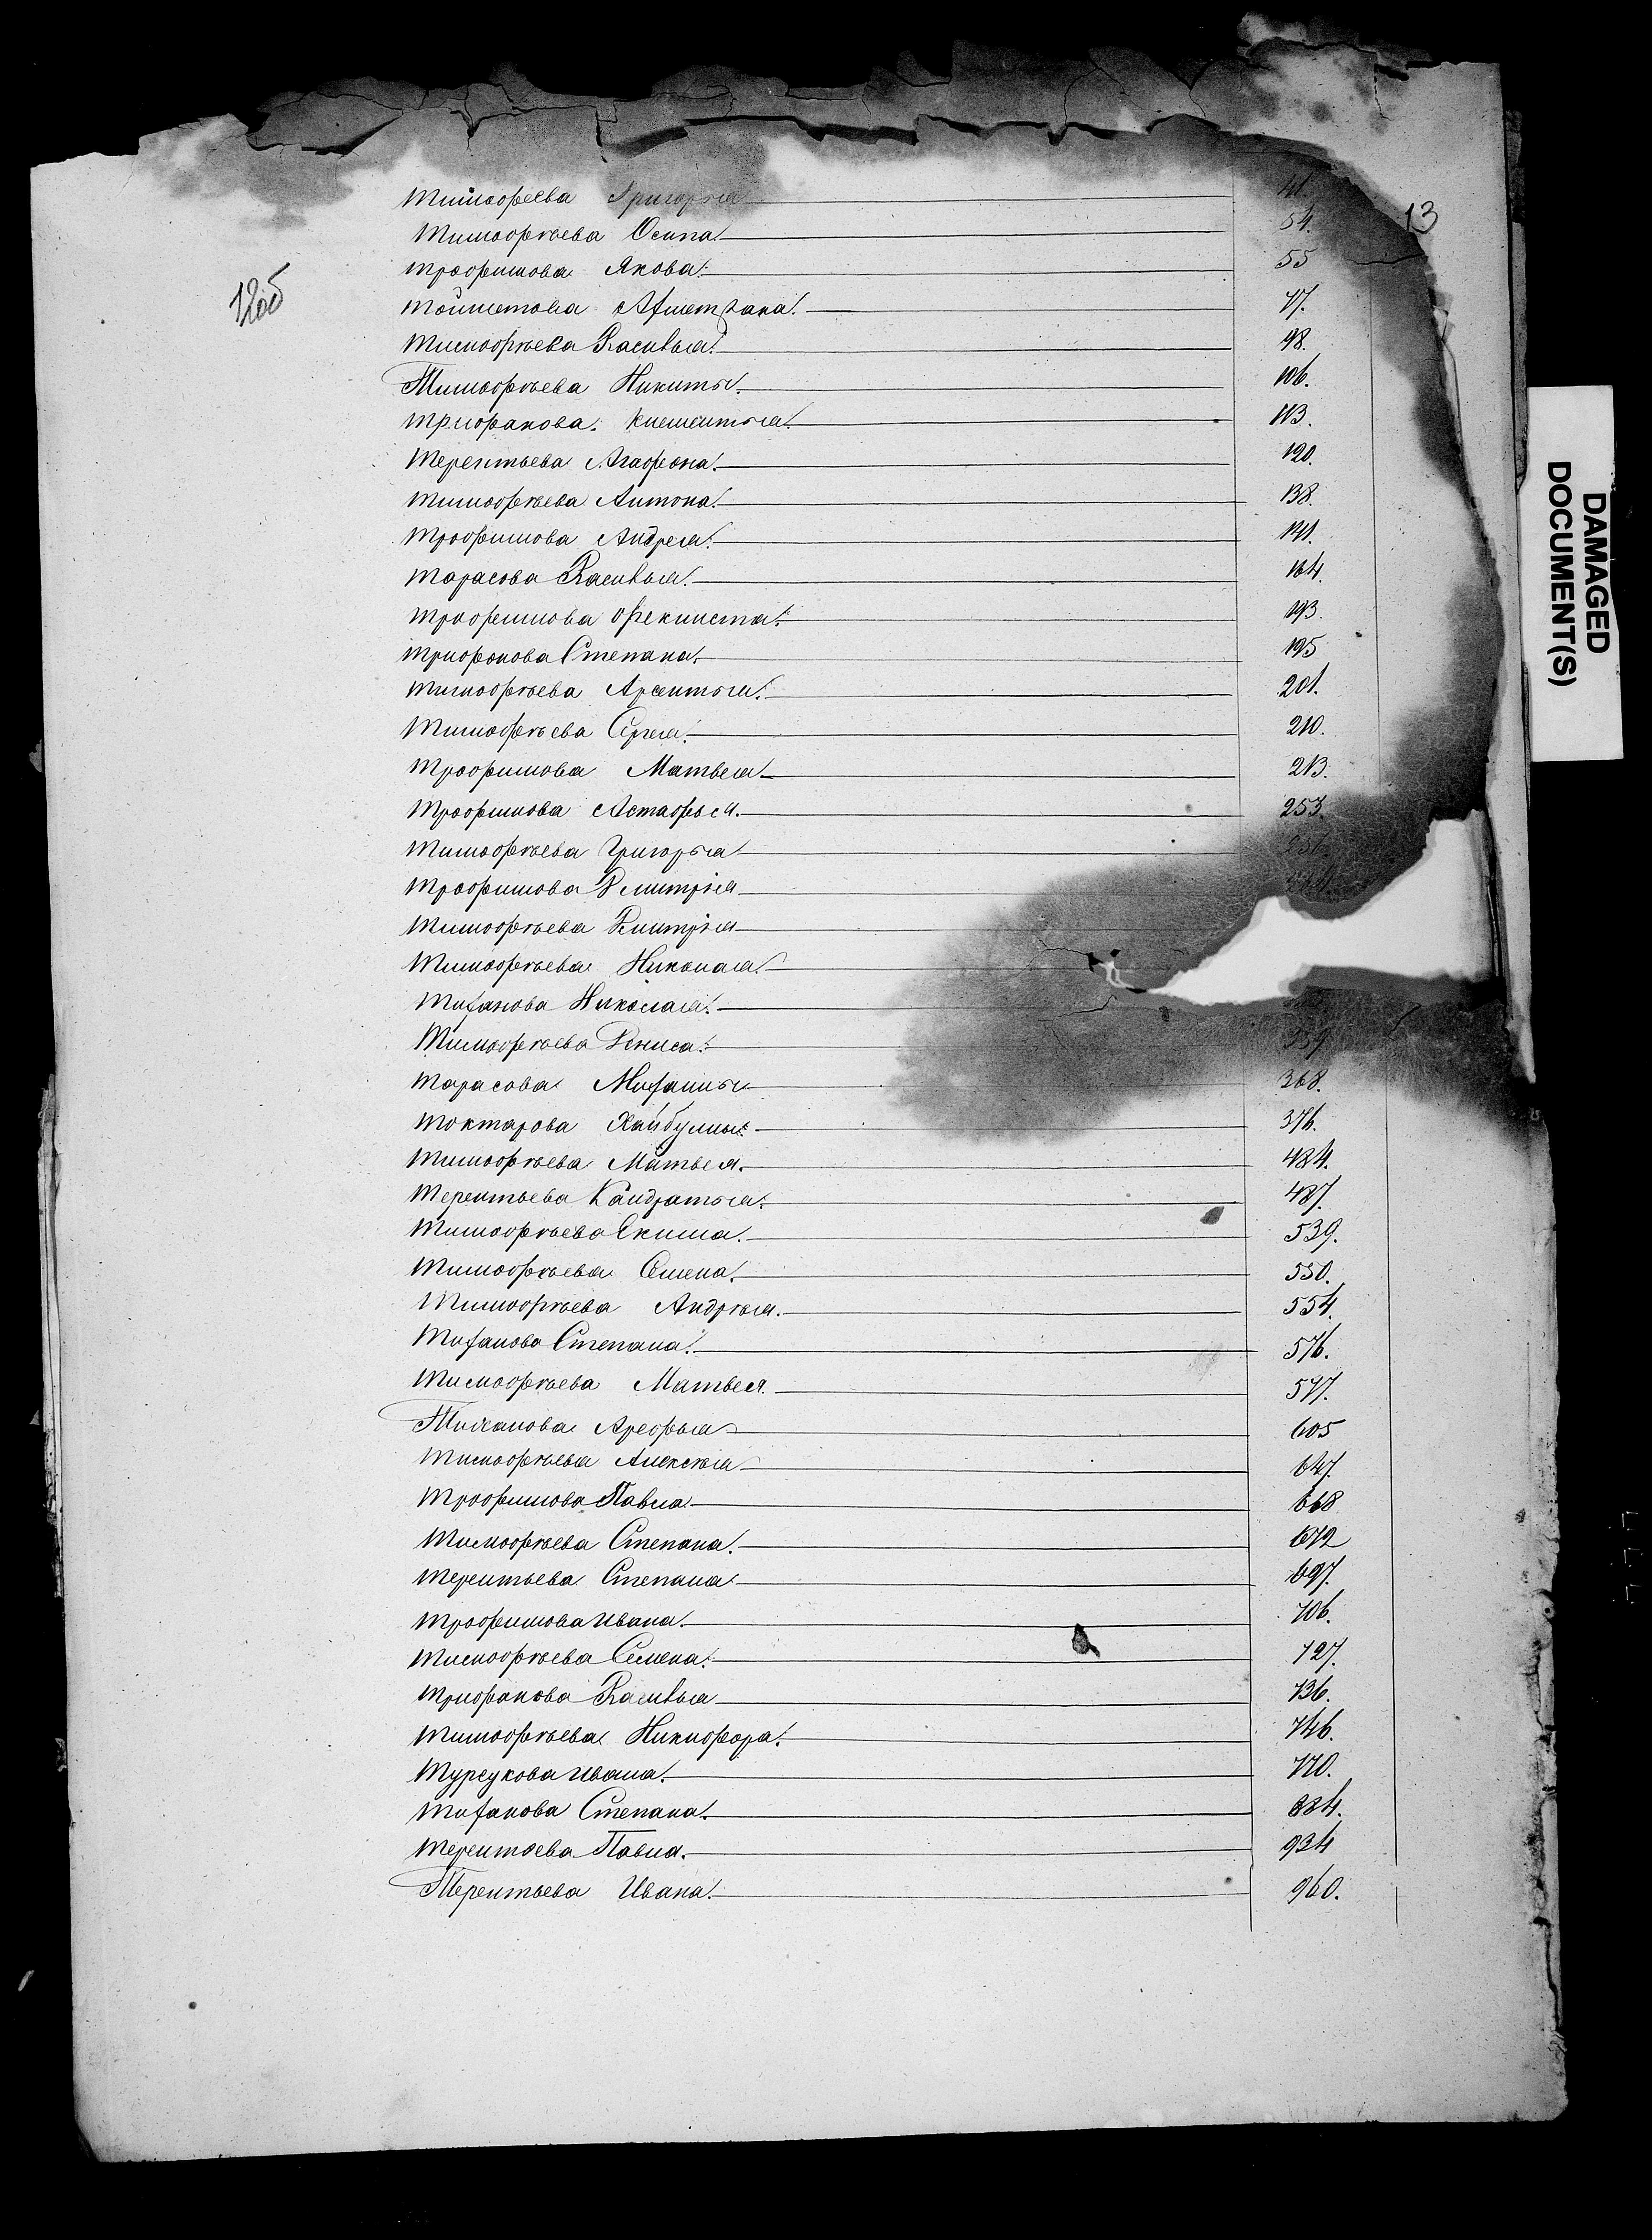 13
12об
Тимофеева Григорья 41.
Тимофѣева Осипа 54.
Трофимова Якова 55
Тойметова Ахметжана 77.
Тимофѣева Василья 98.
Тимофѣева Никиты 106.
Трифанова Клементья 113.
Терентьева Агафона 120.
Тимофѣева Антона 138.
Трофимова Андрея 141.
Тарасова Василья 164.
Трофимова Феклиста 193.
Трифонова Степана 195
Тимофѣева Арсентья 201.
Тимофѣева Сергея 210.
Трофимова Матвея 213.
Трофимова Астафья 253.
Тимофѣева Григорья
Трофимова Дмитрія
Тимофѣева Дмитрія
Тимофѣева Николая
Тиханова Николая
Тимофѣева Дениса
Тарасова Михаилы 368.
Токтарова Хайбуллы 376.
Тимофѣева Матвея 484.
Терентьева Кандратья 487.
Тимофѣева Екима 539.
Тимофѣева Семена 550.
Тимофѣева Андрѣя 554.
Тиханова Степана 576.
Тимофѣева Матвея 577.
Тиханова Арефья 605
Тимофѣева Алексѣя 647.
Трофимова Павла 668
Тимофѣева Степана 672
Терентьева Степана 697.
Трофимова Ивана 706.
Тимофѣева Семена 727.
Трифанова Василья 736.
Тимофѣева Никифора 746.
Турсукова Ивана 770.
Тиханова Степана 884.
Терентьева Павла 934
Терентьева Ивана 960.
DAMAGED
DOCUMENT(S)